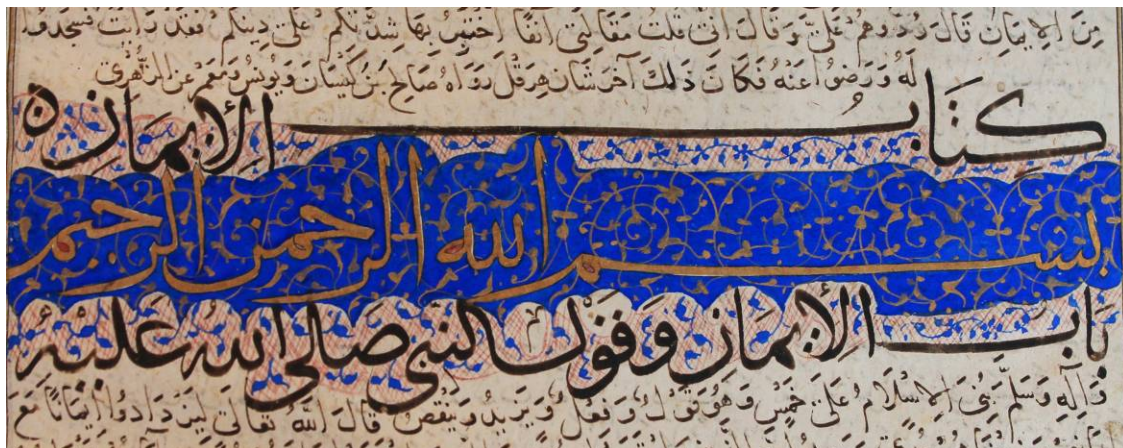 مِنَ الإيمانِ قالَ رُدُّوهُمْ عَلَيَّ وَقالَ انى قلتُ مَقالَتِى آنِفًا اَختَبِرُ بها شِدَّتَكُم عَلَى دِينِكُم فَقَدْ رَأيْتُ فَسَجَدُوا
لَهُ وَرَضُوا عَنْهُ فَكانَ ذلِكَ آخِرَ شَأنِ هِرَقْلَ رَوَاهُ صَالِحُ بنُ كَيْسَانَ وَيُونسُ وَمَعْمَرٌ عَنِ الزُّهْرِىّ
كتَابُ الإيمان
بسم الله الرحمن الرحيم
بَابُ الإيمان وَقَوْل النبى صَلى الله عَليْهِ
وَآلِهِ وَسَلَّمَ بُنِىَ الإسْلَامُ عَلَى خَمْسٍ وَهُوَ قَوْلٌ وَفِعْلٌ وَيَزِيدُ وَيَنْقُصُ قالَ اللهُ تَعَالَى لِيَزْدَادُوا إيْمَانًا مَعَ